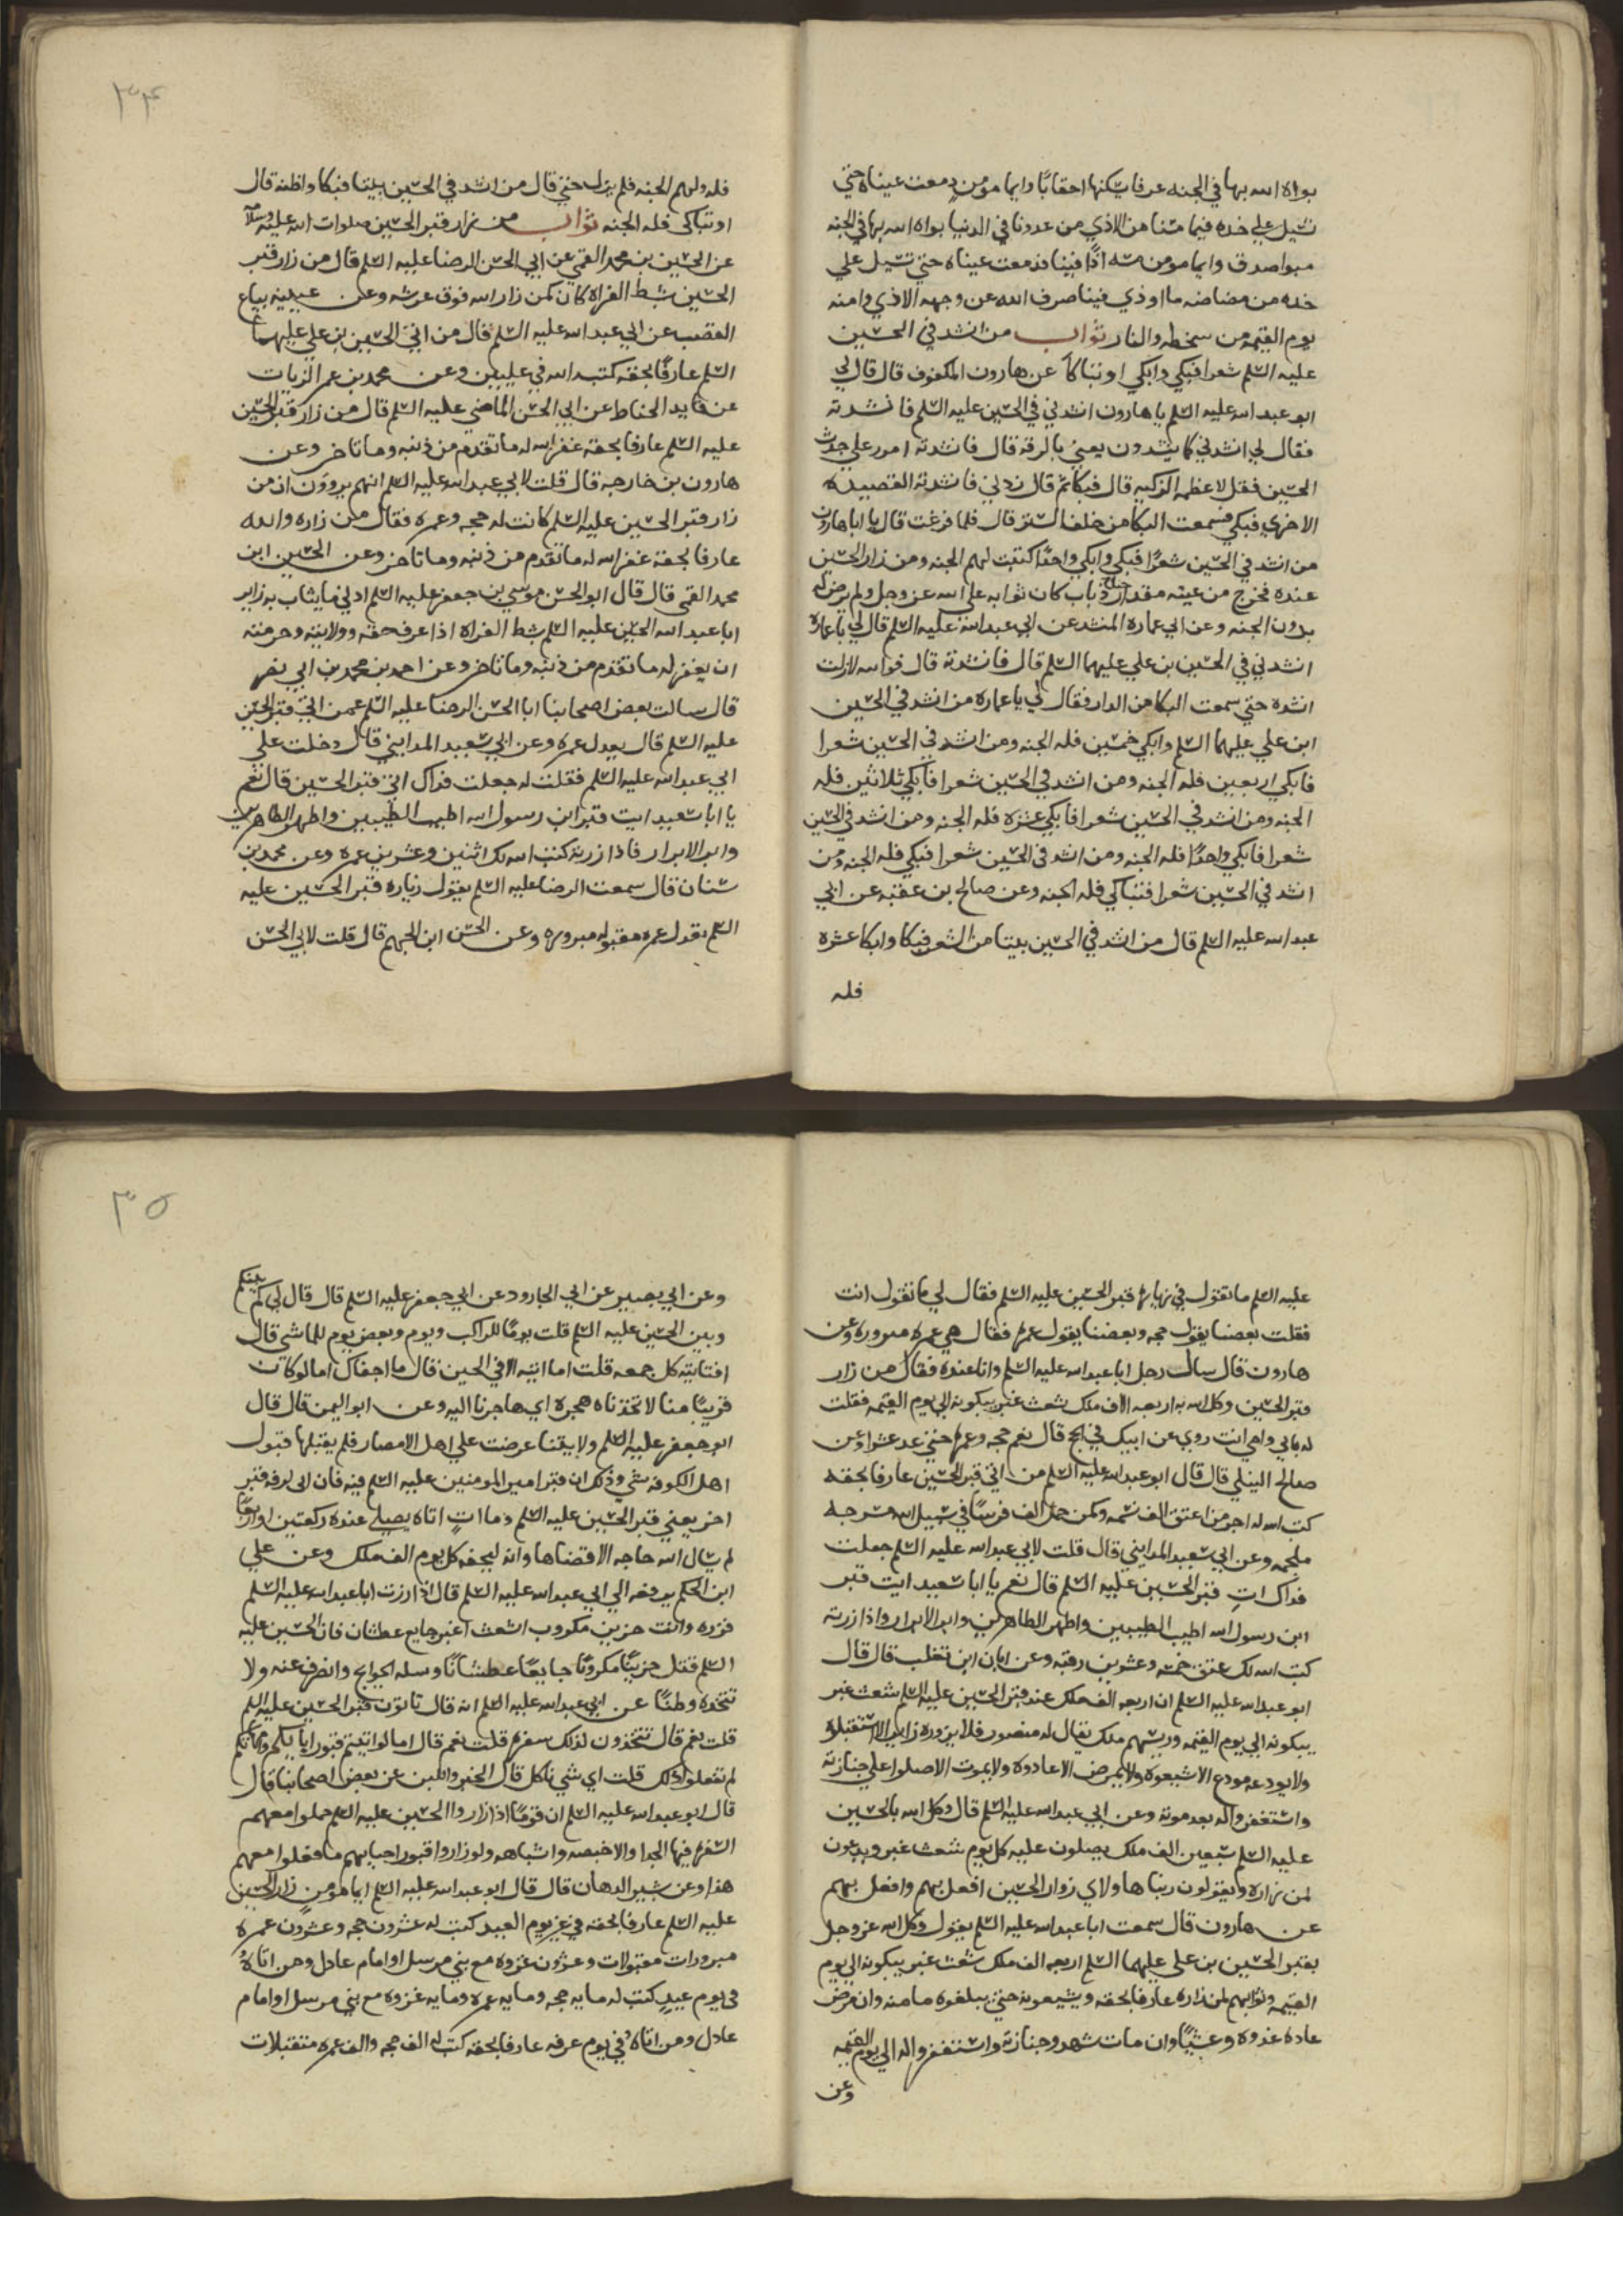 بواه الله بها في الجنه غرفا يسكنها احقابا وايما مومن دمعت عيناه حتي
تسيل علي خده فيما مسنا من الاذي من عدونا في الدنيا بواه الله بها في الجنه
مبوا صدق وايما مومن مسه اذا فينا فدمعت عيناه حتي تسيل علي
خده من مضاضه ما اوذي فينا صرف الله عن وجهه الاذي وامنه
يوم القيمه من سخطه والنار ثواب من انشد في الحسين
عليه السلم شعرا فبكي وابكي او تباكا عن هارون المكفوف قال قال لي
ابو عبد الله عليه السلم يا هارون انشدني في الحسين عليه السلم فانشدته
فقال لي انشدني كما ينشدون يعني بالرقه قال فانشدته امرر علي جدث
الحسين فقل لاعظمه الزكيه قال فبكا ثم قال زدني فانشدته القصيده
الاخري فبكي فسمعت البكا من خلف الستر قال فلما فرغت قال يا ابا هارون
من انشد في الحسين شعرا فبكي وابكي واحدا كتبت لهم الجنه ومن زار الحسين
عنده فخرج من عينه مقدار جناح ذباب كان ثوابه علي الله عز وجل ولم يرض له
بدون الجنه وعن ابي عماره المنشد عن ابي عبد الله عليه السلم قال لي يا عماره
انشدني في الحسين بن علي عليهما السلم قال فانشدته قال فوالله لازلت
انشده حتي سمعت البكا من الدار فقال لي يا عماره من انشد في الحسين
ابن علي عليهما السلم وابكي خمسين فله الجنه ومن انشد في الحسين شعرا
فابكي اربعين فله الجنه ومن انشد في الحسين شعرا فابكي ثلاثين فله
الجنه ومن انشد في الحسين شعرا فابكي عشره فله الجنه ومن انشد في الحسين
شعرا فابكي واحدا فله الجنه ومن انشد في الحسين شعرا فبكي فله الجنه ومن
انشد في الحسين شعرا فتباكي فله الجنه وعن صالح بن عقبه عن ابي
عبد الله عليه السلم قال من انشد في الحسين بيتا من الشعر فبكا وابكا عشره
فله
٣٤
فله ولهم الجنه فلم يزل حتي قال من انشد في الحسين بيتا فبكا واظنه قال
او تباكي فله الجنه ثواب من زار قبر الحسين صلوات الله عليه وسلامه
عن الحسين بن محمد القمي عن ابي الحسن الرضا عليه السلم قال من زار قبر
الحسين بشط الفراة كان كمن زار الله فوق عرشه وعن عيينه بياع
القصب عن ابي عبد الله عليه السلم قال من اتي الحسين بن علي عليهما
السلم عارفا بحقه كتبه الله في عليين وعن محمد بن عمر الزيات
عن قايد الحناط عن ابي الحسن الماضي عليه السلم قال من زار قبر الحسين
عليه السلم عارفا بحقه غفر الله له ما تقدم من ذنبه وما تاخر وعن
هارون بن خارجه قال قلت لابي عبد الله عليه السلم انهم يروون ان من
زار قبر الحسين عليه السلم كانت له حجه وعمره فقال من زاره والله
عارفا بحقه غفر الله له ما تقدم من ذنبه وما تاخر وعن الحسين ابن
محمد القمي قال قال ابو الحسن موسي بن جعفر عليه السلم ادني ما يثاب به زاير
ابا عبد الله الحسين عليه السلم بشط الفراة اذا عرف حقه وولايته وحرمته
ان يغفر له ما تقدم من ذنبه وما تاخر وعن احمد بن محمد بن ابي نصر
قال سالت بعض اصحابنا ابا الحسن الرضا عليه السلم عمن اتي قبر الحسين
عليه السلم قال يعدل عمره وعن ابي سعيد المدايني قال دخلت علي
ابي عبد الله عليه السلم فقلت له جعلت فداك اتي قبر الحسين قال نعم
يا ابا سعيد ايت قبر ابن رسول الله اطيب الطيبين واطهر الطاهرين
وابر الابرار فاذا زرته كتب الله لك اثنين وعشرين عمره وعن محمد بن
سنان قال سمعت الرضا عليه السلم يقول زياره قبر الحسين عليه
السلم تعدل عمره مقبوله مبروره وعن الحسن ابن الجهم قال قلت لابي الحسن
عليه السلم ما تقول في زياره قبر الحسين عليه السلم فقال لي ما تقول انت
فقلت بعضنا يقول حجه وبعضنا يقول عمره فقال هي عمره مبروره وعن
هارون قال سال رجل ابا عبد الله عليه السلم وانا عنده فقال من زار
قبر الحسين وكل الله به اربعه الاف ملك شعث غبر يبكونه الي يوم القيمه فقلت
له بابي وامي انت روي عن ابيك في الحج قال نعم حجه وعمره حتي عد عشرا وعن
صالح النيلي قال قال ابو عبد الله عليه السلم من اتي قبر الحسين عارفا بحقه
كتب الله له اجر من اعتق الف نسمه وكمن حمل الف فرسا في سبيل الله مسرجه
ملجمه وعن ابي سعيد المدايني قال قلت لابي عبد الله عليه السلم جعلت
فداك ات قبر الحسين عليه السلم قال نعم يا ابا سعيد ايت قبر
ابن رسول الله اطيب الطيبين واطهر الطاهرين وابر الابرار واذا زرته
كتب الله لك عتق خمسه وعشرين رقبه وعن ابان ابن تغلب قال قال
ابو عبد الله عليه السلم ان اربعه الف ملك عند قبر الحسين عليه السلم شعث غبر
يبكونه الي يوم القيمه وريسهم ملك يقال له منصور فلا يزوره زاير الا استقبلوه
ولا يودعه مودع الا شيعوه ولا يمرض الا عادوه ولا يموت الا صلوا علي جنازته
واستغفروا له بعد موته وعن ابي عبد الله عليه السلم قال وكل الله بالحسين
عليه السلم سبعين الف ملك يصلون عليه كل يوم شعث غبر ويدعون
لمن زاره ويقولون ربنا هاولاي زوار الحسين افعل بهم وافعل بهم
عن هارون قال سمعت ابا عبد الله عليه السلم يقول وكل الله عز وجل
بقبر الحسين بن علي عليهما السلم اربعه الف ملك شعث غبر يبكونه الي يوم
القيمه وثوابهم لمن زاره عارفا بحقه ويشيعونه حتي يبلغوه مامنه وان مرض
عاده غدوه وعشيا وان مات شهدو جنازته واستغفروا له الي يوم القيمه
وعن
٣٥
وعن ابي بصير عن ابي الجارود عن ابي جعفر عليه السلم قال قال لي كم بينكم
وبين الحسين عليه السلم قلت يوما للراكب ويوم وبعض يوم للماشي قال
افتاتيه كل جمعه قلت اما اتيه الا في الحين قال ما اجفاك اما لو كان
قريبا منا لاتخذناه هجره اي هاجرنا اليه وعن ابو اليمن قال قال
ابو جعفر عليه السلم ولايتنا عرضت علي اهل الامصار فلم يقبلها قبول
اهل الكوفه شي وذلك ان قبر امير المومنين عليه السلم فيه فان الي لزقه قبر
اخر يعني قبر الحسين عليه السلم وما ات اتاه يصلي عنده ركعتين او اربعا
لم يسال الله حاجه الا قضاها وانه ليحفه كل يوم الف ملك وعن علي
ابن الحكم يرفعه الي ابي عبد الله عليه السلم قال اذا زرت ابا عبد الله عليه السلم
فزره وانت حزين مكروب اشعث اغبر جايع عطشان فان الحسين عليه
السلم قتل حزينا مكروبا جايعا عطشانا وسله الحوايج وانصرف عنه ولا
تتخذه وطنا عن ابي عبد الله عليه السلم انه قال تاتون قبر الحسين عليه السلم
قلت نعم قال تتخذون لذلك سفره قلت نعم قال اما لو اتيتم قبور ابايكم وامهاتكم
لم تفعلوا ذلك قلت اي شي ناكل قال الخبز واللبن عن بعض اصحابنا قال
قال ابو عبد الله عليه السلم ان قوما اذا زاروا الحسين عليه السلم حملوا معهم
السفره فيها الجدا والاخبصه واشباهه ولو زاروا قبور احبايهم ما فعلوا معهم
هذا وعن بشير الدهان قال قال ابو عبد الله عليه السلم ايما مومن زار الحسين
عليه السلم عارفا بحقه في غير يوم العيد كتب له عشرون حجه وعشرون عمره
مبرورات مقبولات وعشرون غزوه مع نبي مرسل او امام عادل ومن اتاه
في يوم عيد كتب له مايه حجه ومايه عمره ومايه غزوه مع نبي مرسل او امام
عادل ومن اتاه في يوم عرفه عارفا بحقه كتب له الف حجه والف عمره متقبلات